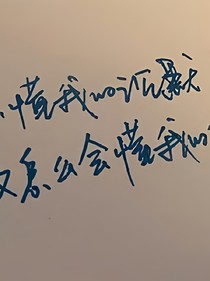 懂我的沉默
又怎么会懂我的